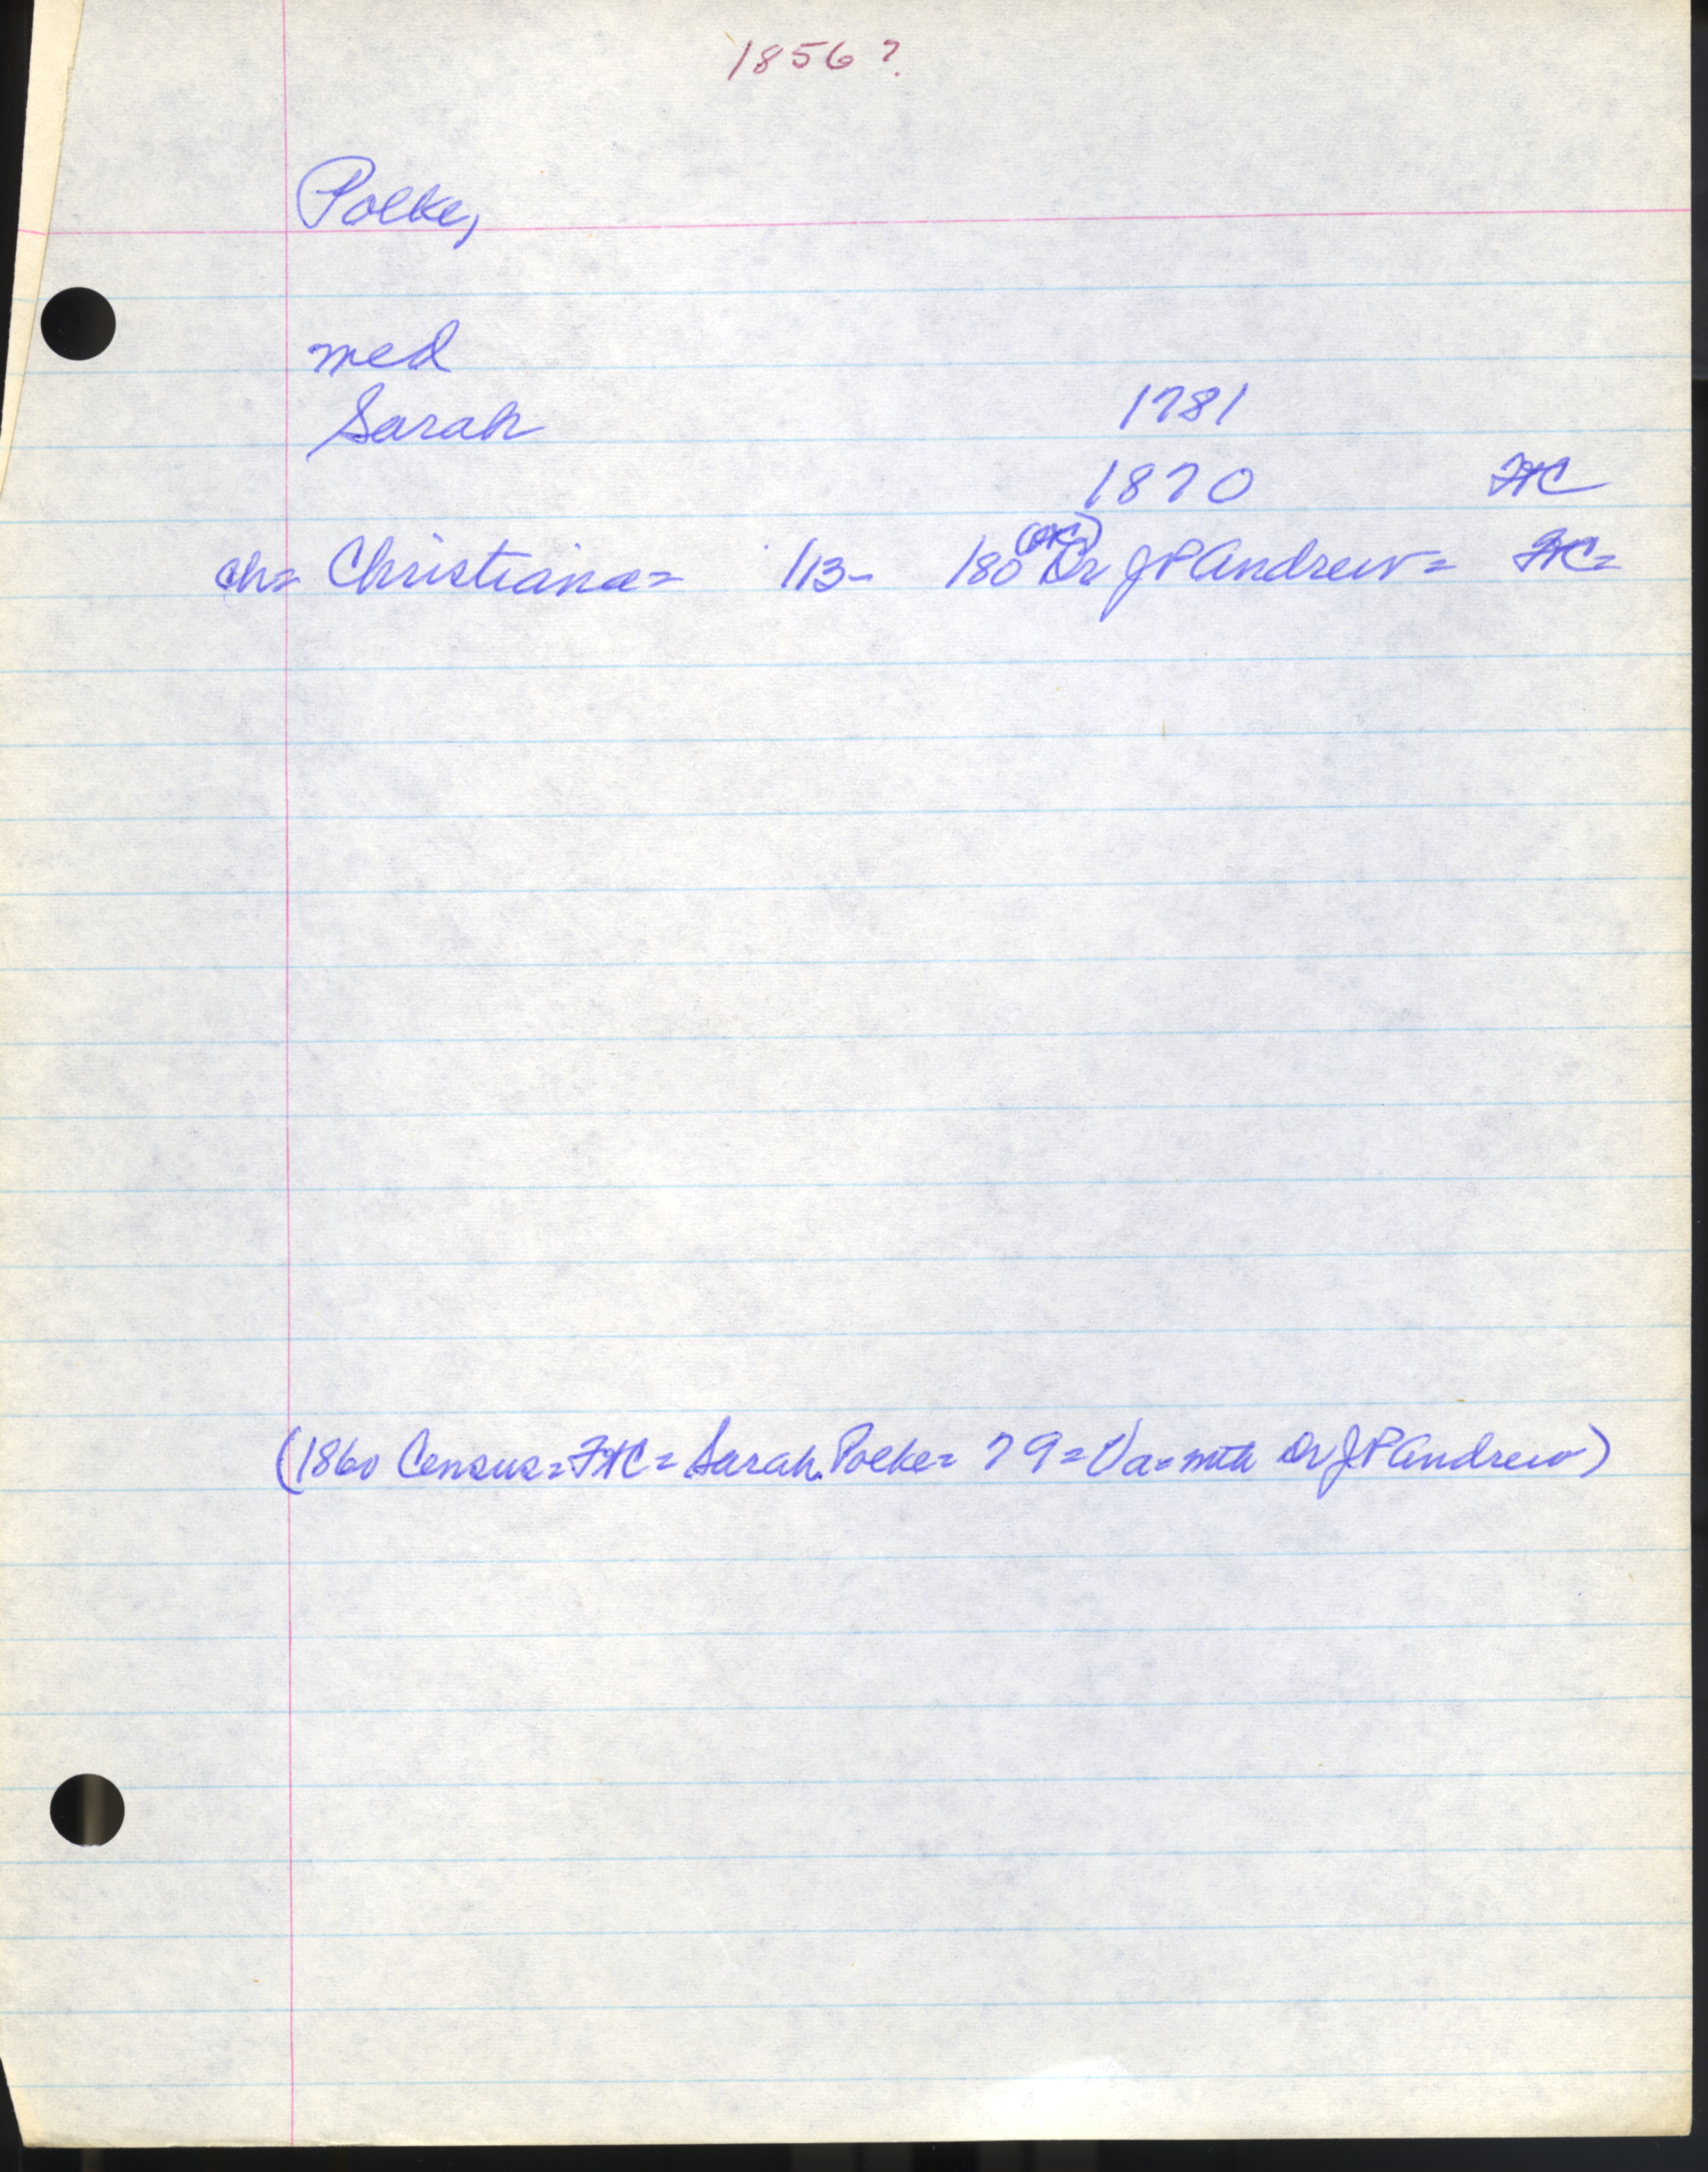 1856?
Polke,
med
Sarah 1781
1870 FtC
(OKC)
ch= Christiana= 1813- 180 Dr J P Andrew= FtC=
(1860 Census=FtC= Sarah Polke= 79=Va=with Dr J P Andrew)